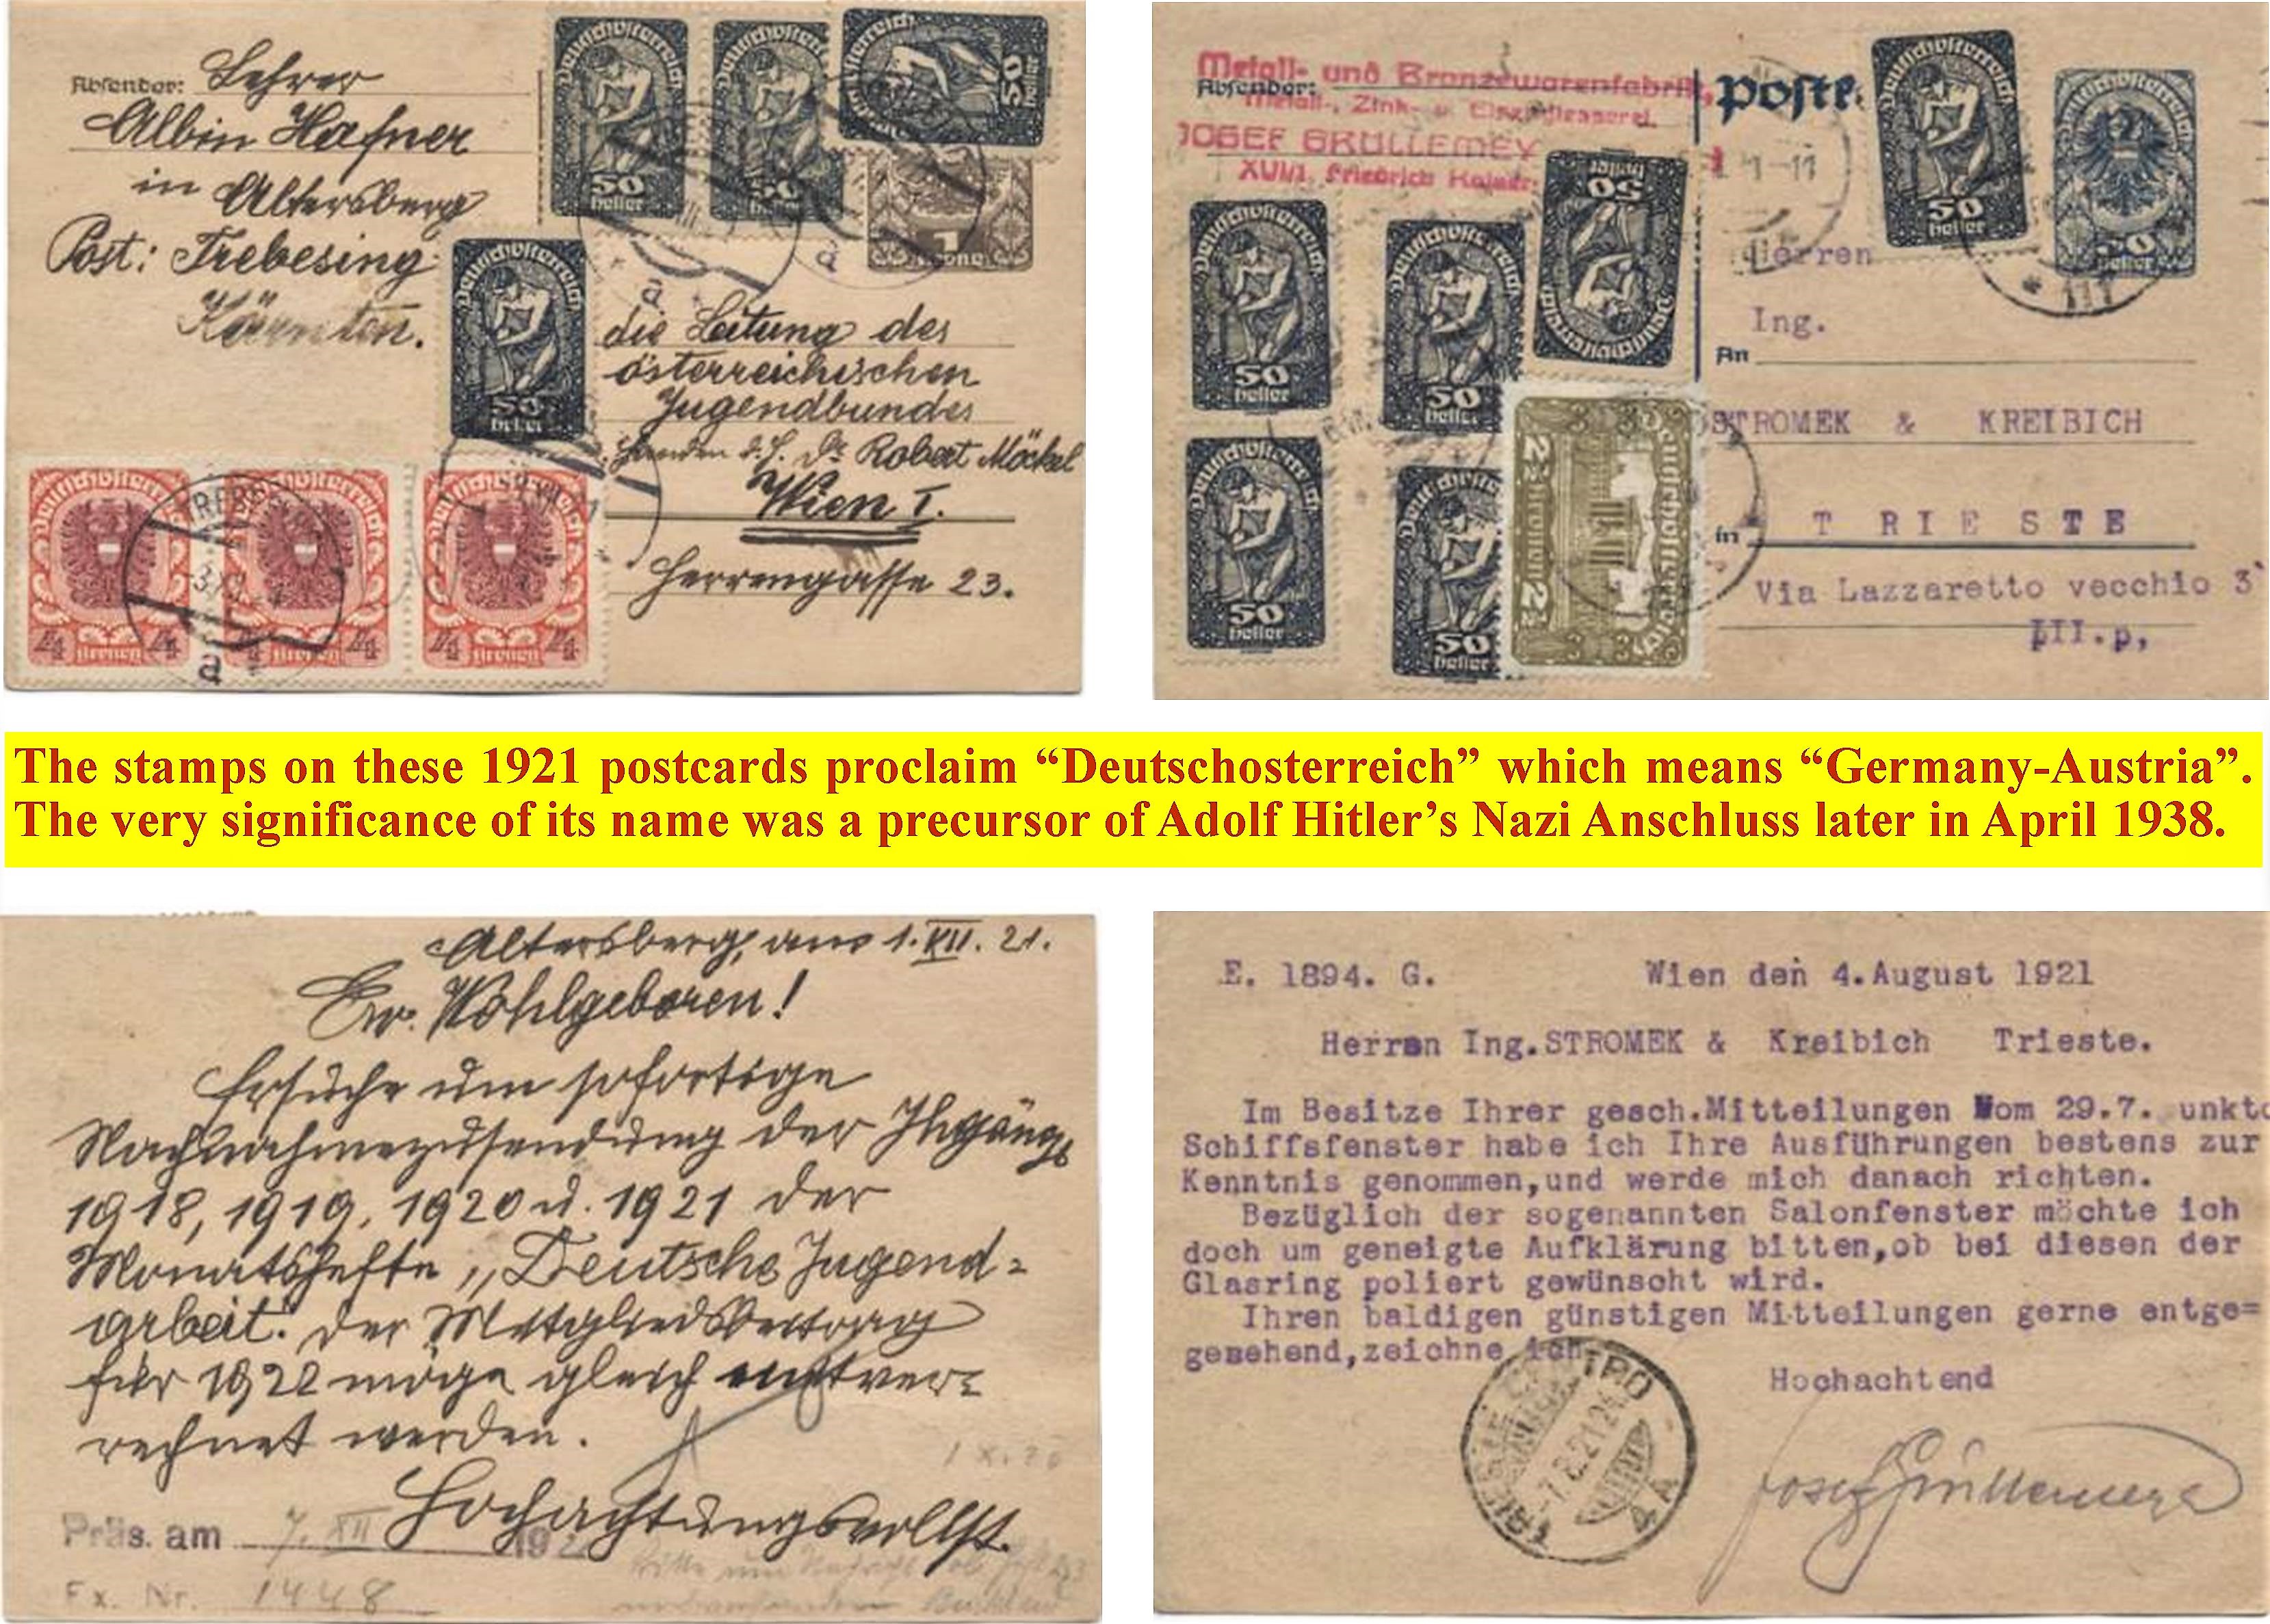 Absender: Lehrer
Albin Hafner
in Altersberg
Post: Trebesing
Kärnten.
Deutschösterreich
50
heller
Deutschösterreich
50
heller
50
1
Krone
Deutschösterreich
50
heller
die Leitung des
österreichischen
Jugendbundes
Handen d. H. Dr. Robert Möckel
Wien I.
Herrengasse 23.
Deutschösterreich
4 4
Kronen
Deutschösterreich
4 4
Kronen
Deutschösterreich
4 4
Kronen
a
a
a
Metall- und Bronzewarenfabrik,
Absender:
Metall-, Zink- u. Eisengiesserei,
JOSEF GRÜLLEMEY
XVII/1 Friedrich Kaiser
Postk
Deutschösterreich
50
heller
Deutschösterreich
heller
Deutschösterreich
50
heller
Deutschösterreich
50
heller
Deutschösterreich
50
heller
Deutschösterreich
50
heller
Deutschösterreich
50
heller
2½ Kronen 2½
Herren
Ing.
An
STROMEK & KREIBICH
in TRIESTE
Via Lazzaretto vecchio 3
III.p,
The stamps on these 1921 postcards proclaim “Deutschosterreich” which means “Germany-Austria”.
The very significance of its name was a precursor of Adolf Hitler’s Nazi Anschluss later in April 1938.
Altersberg, am 1. XII. 21.
Ew. Wohlgeboren!
Ersuche um sofortige
Nachnahmezusendung der Jhgänge
1918, 1919, 1920 u. 1921 der
Monatshefte „Deutsche Jugend=
arbeit.“ Der Mitgliedsbeitrag
für 1922 möge gleich mitver=
rechnet werden.
Hochachtungsvollst.
Präs. am 7. XII 192
Ex. Nr. 1448
E. 1894. G. Wien den 4.August 1921
Herren Ing.STROMEK & Kreibich Trieste.
Im Besitze Ihrer gesch.Mitteilungen Vom 29.7. punkto
Schiffsfenster habe ich Ihre Ausführungen bestens zur
Kenntnis genommen,und werde mich danach richten.
Bezüglich der sogenannten Salonfenster möchte ich
doch um geneigte Aufklärung bitten,ob bei diesen der
Glasring poliert gewünscht wird.
Ihren baldigen günstigen Mitteilungen gerne entge=
gesehend,zeichne ich
Hochachtend
TRIESTE CENTRO
-7.8.21 21
4A